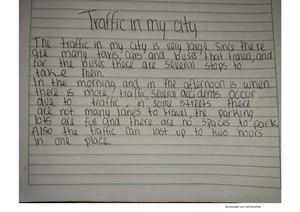 Traffic in my city
The traffic in my city is very large since there
are many taxis, cars and buses that travel, and
for the buses there are several stops to
take them.
In the morning and in the afternoon is when
there is more traffic, several accidents occur
due to traffic, in some streets there
are not many lanes to travel, the parking
lots are full and there are no spaces to park.
Also the traffic can last up to two hours
in one place.